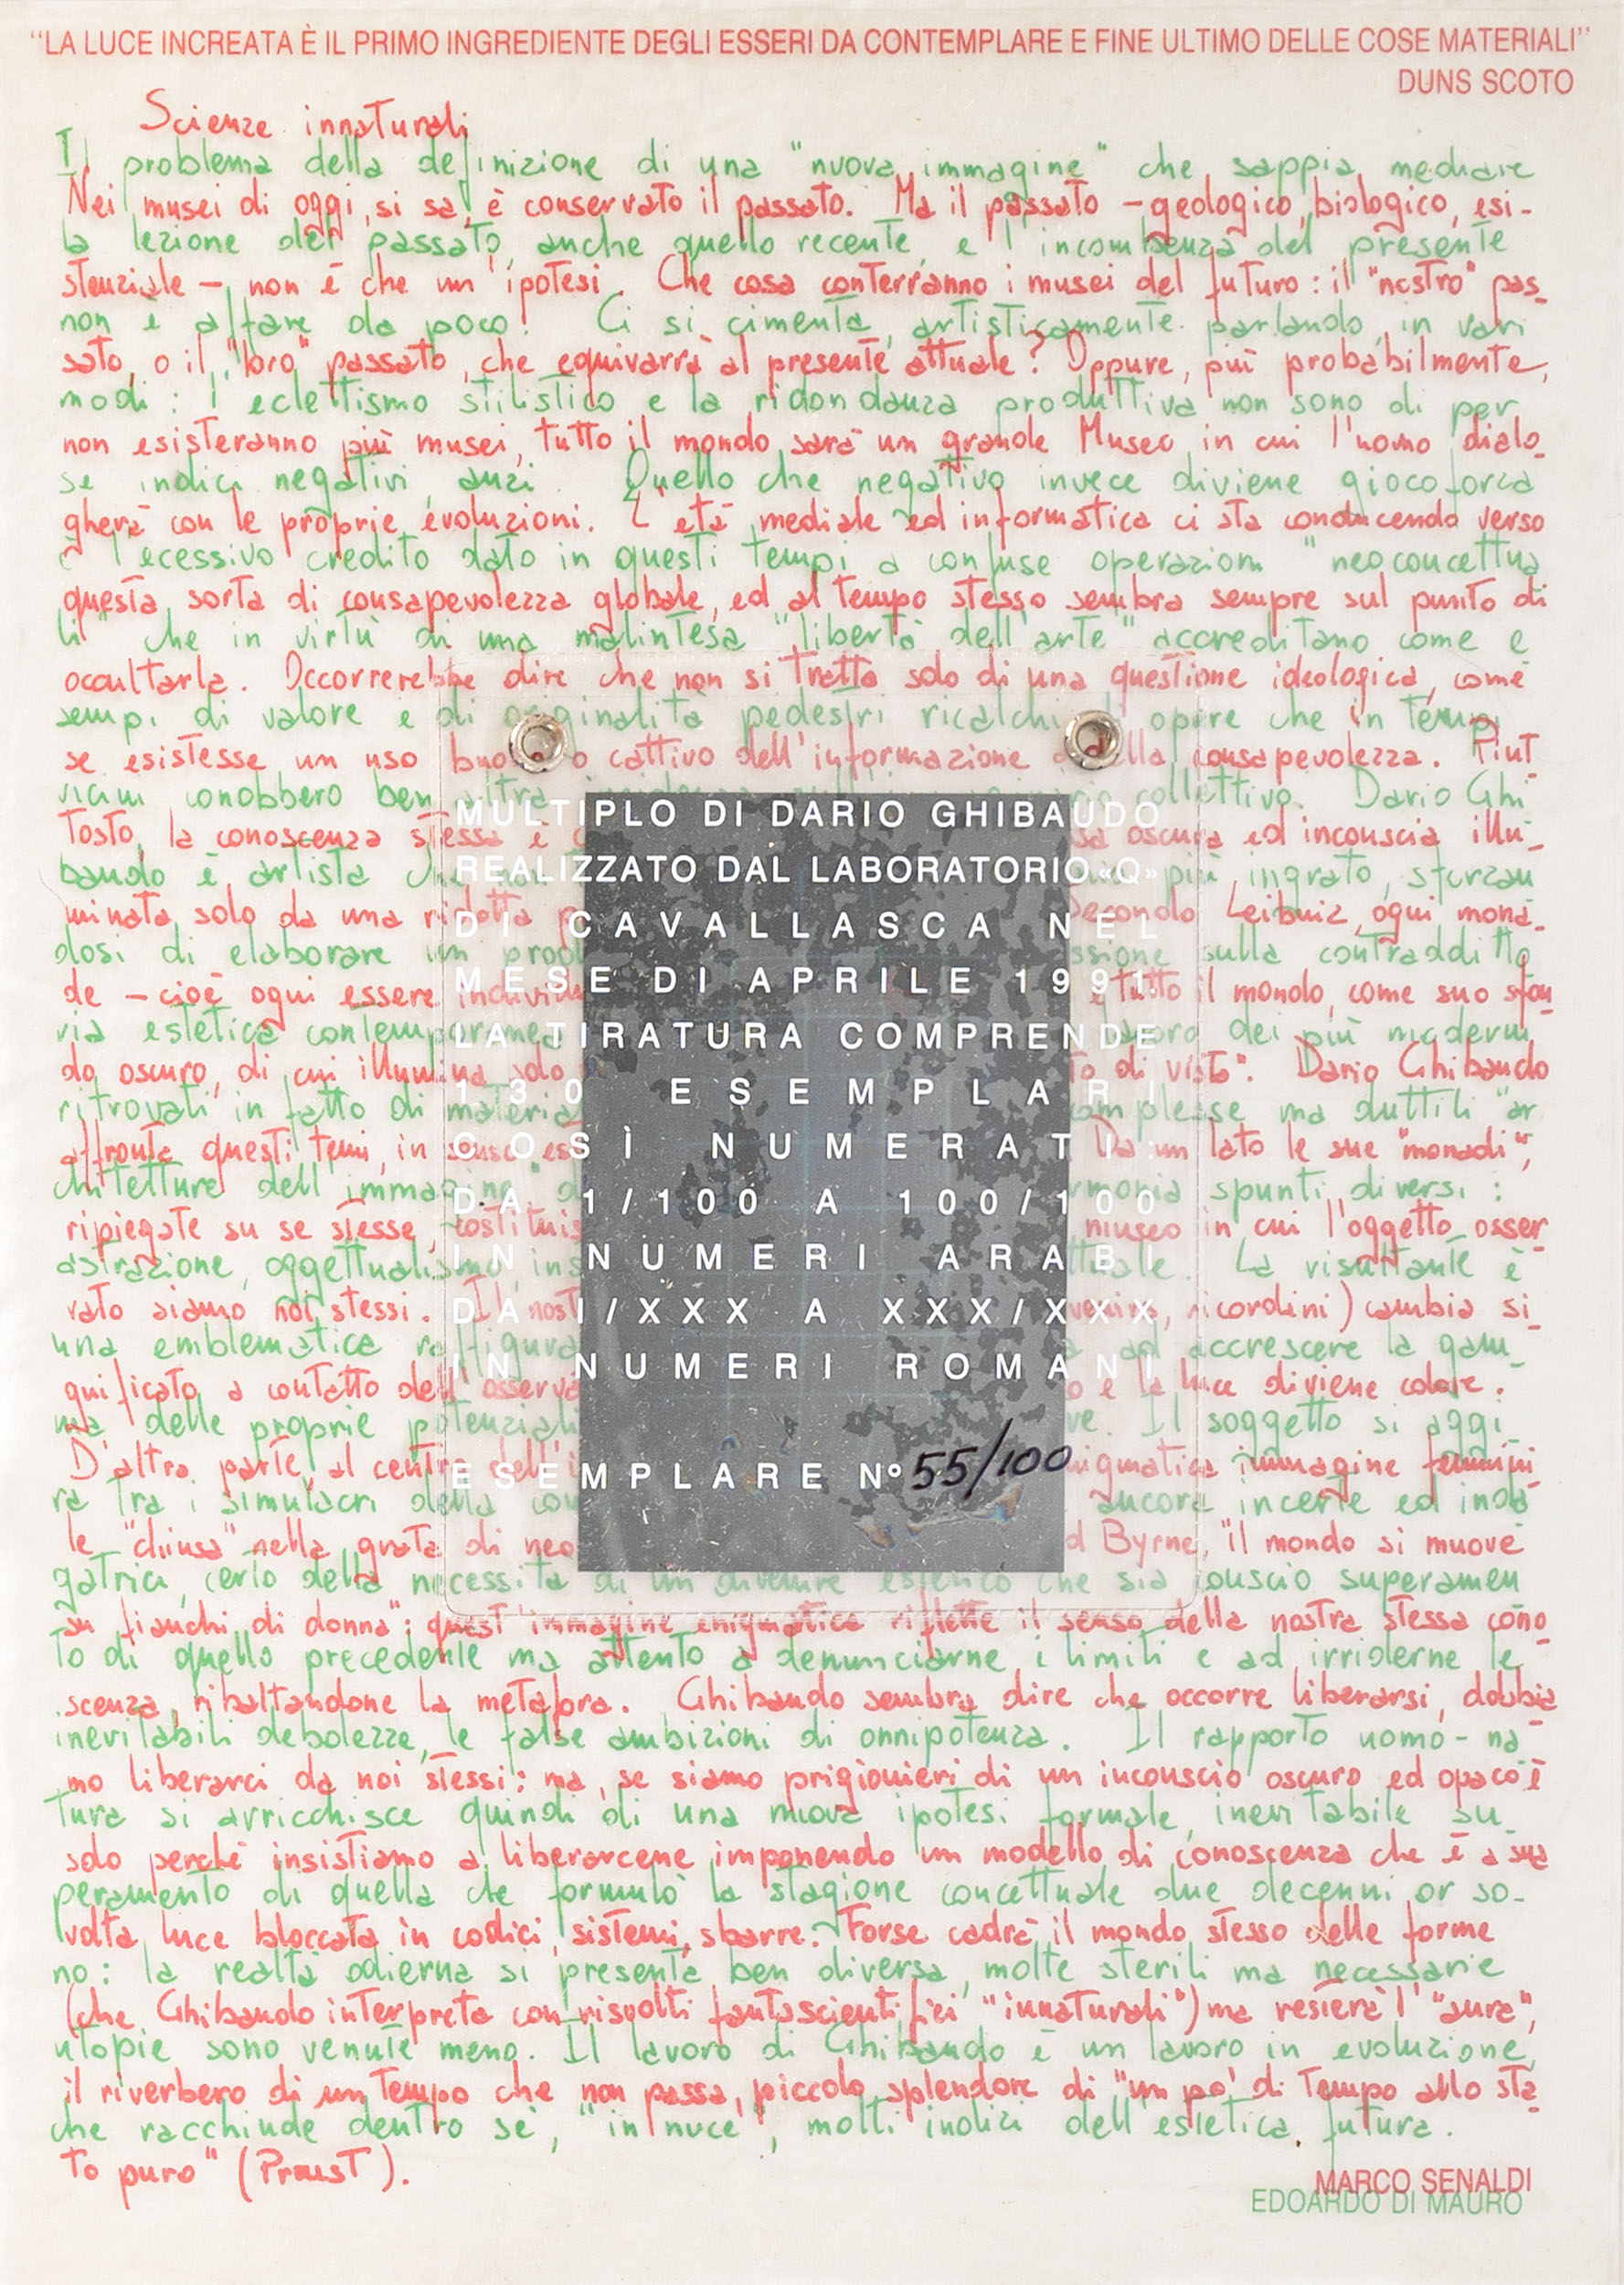 “LA LUCE INCREATA È IL PRIMO INGREDIENTE DEGLI ESSERI DA CONTEMPLARE E FINE ULTIMO DELLE COSE MATERIALI”
DUNS SCOTO
Scienze innaturali
Il problema della definizione di una "nuova immagine" che sappia mediare
Nei musei di oggi, si sa, è conservato il passato. Ma il passato - geologico, biologico, esi-
la lezione del passato, anche quello recente, e l'incombenza del presente
stenziale -, non è che un'ipotesi. Che cosa conterranno i musei del futuro: il "nostro" pas-
non è affare da poco. Ci si cimenta, artisticamente parlando, in vari
sato, o il "loro" passato, che equivarrà al presente attuale? Oppure, più probabilmente,
modi: l'eclettismo stilistico e la ridondanza produttiva non sono di per
non esisteranno più musei, tutto il mondo sarà un grande Museo in cui l'uomo dialo-
se indici negativi, anzi. Quello che negativo invece diviene giocoforza
gherà con le proprie evoluzioni. L'età mediale ed informatica ci sta conducendo verso
è l'ecessivo credito dato in questi tempi a confuse operazioni "neoconcettua
questa sorta di consapevolezza globale, ed al tempo stesso sembra sempre sul punto di
li" che in virtù di una malintesa "libertà dell'arte" accreditano come e
occultarla. Occorrerebbe dire che non si tratta solo di una questione ideologica, come
sempi di valore e di originalità pedestri ricalchi di opere che in tempi
se esistesse un uso buono o cattivo dell'informazione o della consapevolezza. Piut
vicini conobbero ben altra collettivo. Dario Ghi
tosto, la conoscenza stessa è oscura ed inconscia illu-
baudo è artista più ingrato, sforzan
minata solo da una ridotta Secondo Leibniz, ogni mona-
dosi di elaborare un sulla contradditto
de - cioè ogni essere individu e tutto il mondo, come suo sfon
via estetica contemporanea dei più moderni
do oscuro, di cui illumina solo di vista". Dario Ghibaudo
ritrovati in fatto di material complesse ma duttili "ar
affronta questi temi, in senso es Da un lato le sue "monadi",
chitetture dell'immagine" armonia spunti diversi:
ripiegate su se stesse, costituis museo in cui l'oggetto osser
astrazione, oggettualismo, ins La risultante è
vato siamo noi stessi. Il nost ricordini) cambia si-
una emblematica raffigura ad accrescere la gam-
gnificato a contatto dell'osserva o e la luce diviene colore.
ma delle proprie potenziali Il soggetto si aggi
D'altra parte, al centro dell'i enigmatica immagine femmini
ra tra i simulacri della con ancora incerte ed inda
le "chiusa" nella grata di neo d Byrne, "il mondo si muove
gatrici, certo della necessità di un divenire estetico che sia conscio superamen
su fianchi di donna": quest'immagine enigmatica riflette il senso della nostra stessa cono-
to di quello precedente ma attento a denunciarne i limiti e ad irriderne le
scenza, ribaltandone la metafora. Ghibaudo sembra dire che occorre liberarsi, dobbia
inevitabili debolezze, le false ambizioni di onnipotenza. Il rapporto uomo-na-
mo liberarci da noi stessi: ma, se siamo prigionieri di un inconscio oscuro ed opaco è
tura si arricchisce quindi di una nuova ipotesi formale, inevitabile su-
solo perchè insistiamo a liberarcene imponendo un modello di conoscenza che è a sua
peramento di quella che formulò la stagione concettuale due decenni or so-
volta luce bloccata in codici, sistemi, sbarre. Forse cadrà il mondo stesso delle forme
no: la realtà odierna si presenta ben diversa, molte sterili ma necessarie
(che Ghibaudo interpreta con risvolti fantascientifici "innaturali") ma resterà l'"aura",
utopie sono venute meno. Il lavoro di Ghibaudo è un lavoro in evoluzione,
il riverbero di un tempo che non passa, piccolo splendore di "un po' di tempo allo sta-
che racchiude dentro sè, "in nuce", molti indici dell'estetica futura.
to puro" (Proust).
MARCO SENALDI
EDOARDO DI MAURO
MULTIPLO DI DARIO GHIBAUDO
REALIZZATO DAL LABORATORIO «Q»
DI CAVALLASCA NEL
MESE DI APRILE 1991.
LA TIRATURA COMPRENDE
130 ESEMPLARI
COSÌ NUMERATI:
DA 1/100 A 100/100
IN NUMERI ARABI
DA I/XXX A XXX/XXX
IN NUMERI ROMANI
ESEMPLARE N° 55/100